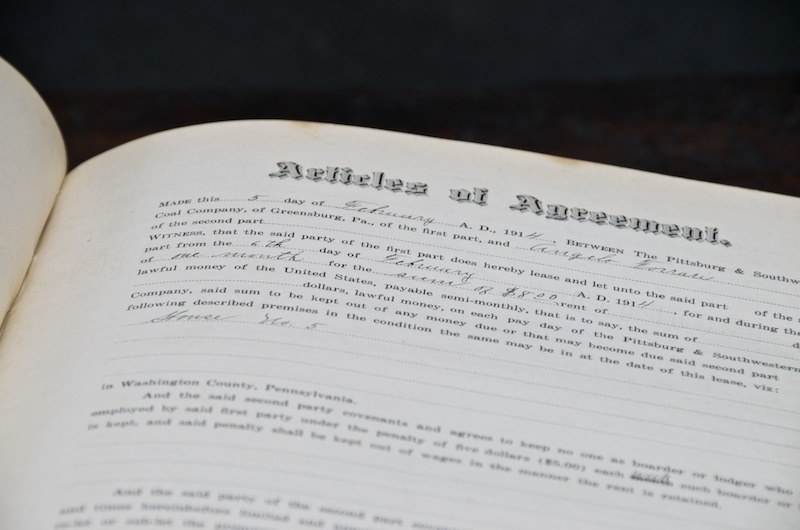 Articles of Agreement.
MADE this 5 day of February A. D., 1914 BETWEEN THE Pittsburg & Southw
Coal Company, of Greensburg, Pa., of the first part, and Angelo
of the second part
WITNESS, that the said party of the first part does hereby lease and let unto the said part of the s
part from the 6th day of February A. D. 1914, for and during the
of one month for the sum of $8.00 rent of
lawful money of the United States, payable semi-monthly, that is to say, the sum of
dollars, lawful money, on each pay day of the Pittsburg & Southwestern
Company, said sum to be kept out of any money due or that may become due said second part
following described premises in the condition the same may be in at the date of this lease, viz:
House No. 5
in Washington County, Pennsylvania.
And the said second party covenants and agrees to keep no one as boarder or lodger who
employed by said first party under the penalty of five dollars ($5.00) each such boarder or
is kept, and said penalty shall be kept out of wages in the manner the rent is retained.
And the said party of the second part
and times hereinbefore limited and